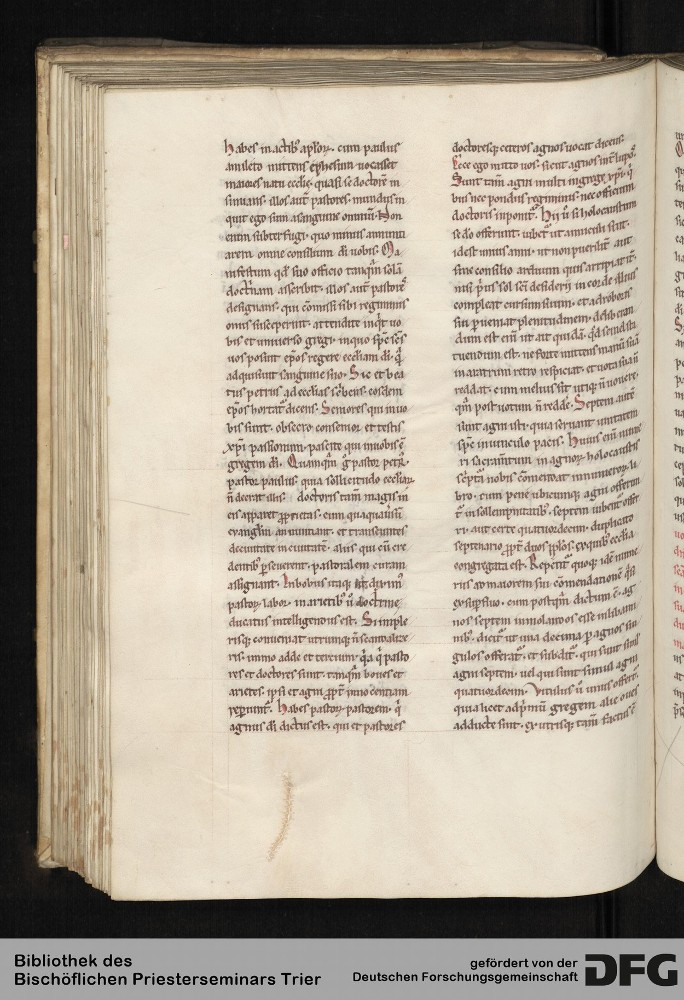 habes in actib; aploꝝ. cum paulus
a mileto mittens ephesum uocasset
maiores natu ecclie. quasi se doctorē in
sinuans. illos aut̄ pastores. mundus in
quit ego sum a sanguine omnium. Non
enim subterfugi. quo minus annunti
arem omne consilium dī uobis. Ma
nifestum qd̄ suo officio tanqm̄ solā
doctnam asseribit. illos aut̄ pastores
designans. qui cōmissi sibi regiminis
onus susceperunt. attendite inqt uo
bis et uniuerso gregi. in quo sp̄c scs̄
uos posuit ep̄os regere ecclesiam dī. q̄
adquisiuit sanguine suo. Sic et bea
tus petrus ad ecclias sc̄bens. eosdem
ep̄os hortat̄ dicens. Seniores qui in uo
bis sunt. obsecro consenior et testis
xp̄i passionum. pascite qui in uobis ē
gregem dī. Quamqm̄ g̊ pastor petr;.
pastor paulus. quia sollicitudo eccliaꝝ
n̄ deerat illis. doctoris tam̄ magis in
eis apparet p̄prietas. cum quaqua uersū
euanglm̄ annuntiant. et transeuntes
de ciuitate in ciuitatē. aliis qui cū cre
dentib; p̄seuerent. pastoralem curam
assignant. In bobus itaq; et
pastoꝝ labor. in arietib; ū doctrine
ducatus intelligendus est. Si simple
risq; conueniat utrumq; n̄ scandalize
ris. immo adde et tercium. q̄a q̄ pasto
res et doctores sunt. tanqm̄ boues et
arietes. ipsi et agni ꝓpt̄ innocentiam
repperiunt̄. Habes pastoꝝ pastorem. q̄
agnus dī dictus est. qui et pastores
doctoresq; ceteros agnos uocat dicens.
Ecce ego mitto uos. sicut agnos int̄ lupos.
Sunt tam̄ agni multi in grege xp̄i. q̄
bus nec pondus regiminis. nec officium
doctoris inponit̄. Hii ū si holocaustum
se dō offerunt. iubet̄ ut anniculi sint.
id est unius anni. ut non puerilit̄ aut
sine consilio arduum quis arripiat it̄.
nisi p̄us sol scī desiderii in corde illius
compleat cursum suum. et ad roboris
sui p̄ueniat plenitudinem. deliberan
dum est eni ut ait quidā. q̄d semel sta
tuendum est. ne forte mittens manū suā
in aratrum retro respiciat. et uota sua n̄
reddat. cum melius sit utiq; n̄ uouere.
qm̄ post uotum n̄ redde. Septem aute
sunt agni isti. quia seruant unitatem
sp̄c in uinculo pacis. Huius eni nume
ri sacramtum in agnoꝝ holocaustis
sc̄pta nobis cōmendat in numeroꝝ li
bro. cum pene ubicumq; agni offerun
t̄ in sollempnitatib;. septem iubent̄ offer
ri. aut certe quatuordecim. duplicato
septenario ꝓpt̄ duos ip̄los. ex quib; ecclia
congregata est. Repetit̄ quoq; idē nume
rus ad maiorem sui cōmendationē q̄si
ex supfluo. cum postqm̄ dictum ē. ag
nos septem immolandos esse in libami
nib;. dicit̄ ut una decima p̄ agnos sin
gulos offerat̄. et subdit̄. qui sunt simul
agni septem. uel qui sunt simul agni
quatuordecim. Vitulus ū unus offert̄.
quia licet ad p̄mū gregem alie oues
adducte sint. ex utrisq; tam̄ factus ē
Bibliothek des
Bischöflichen Priesterseminars Trier
gefördert von der
Deutschen Forschungsgemeinschaft
DFG